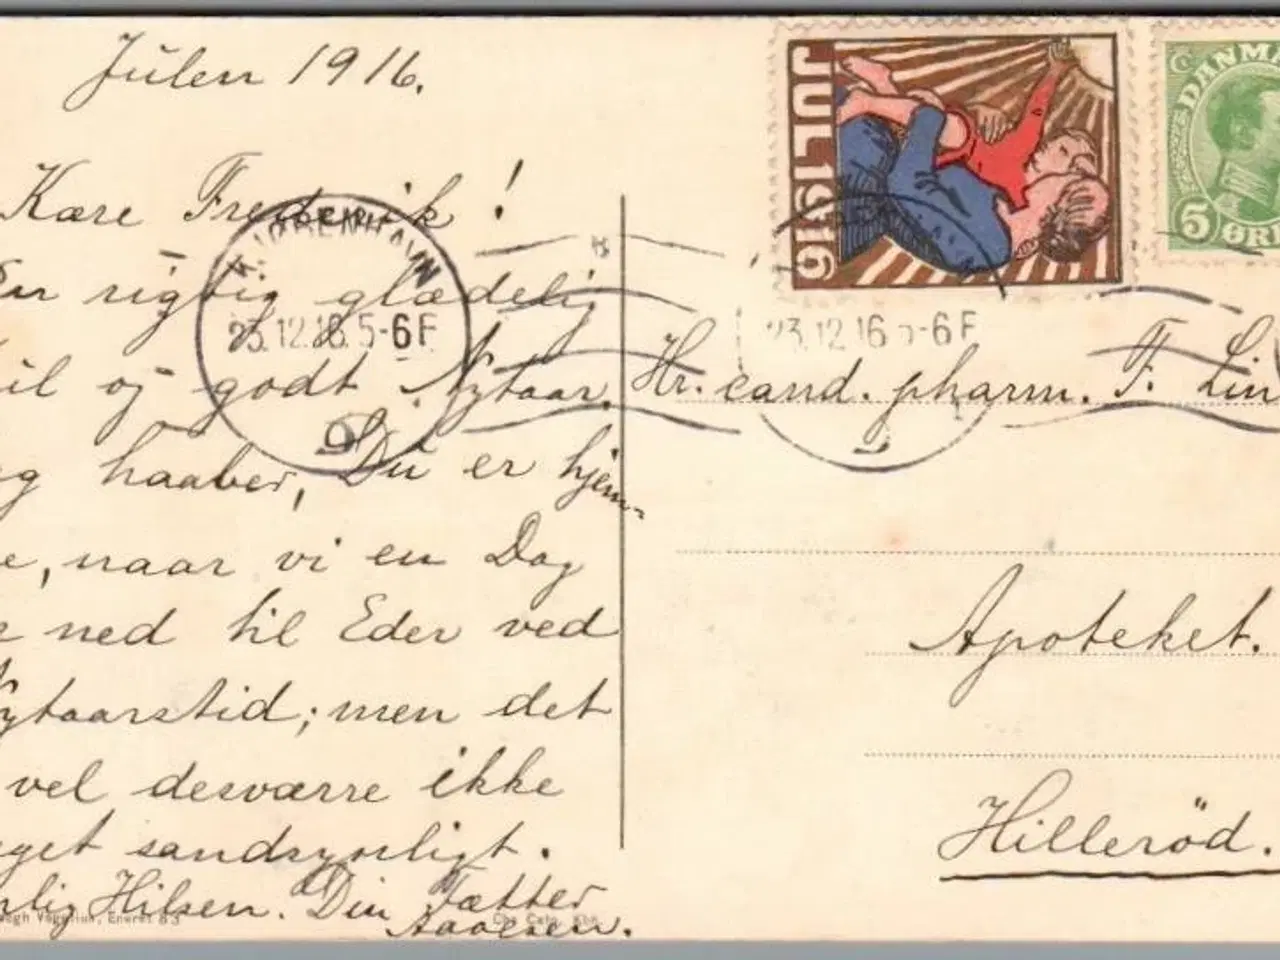 Julen 1916.
Kære Frederik!
En rigtig glædelig
til og godt Nytaar.
haaber, Du er hjem-
e, naar vi en Dag
ned til Eder ved
Nytaarstid; men det
vel desværre ikke
get sandsynligt.
Hilsen. Din Fætter
JUL 1916
DANMARK
5 ØRE
KJØBENHAVN
23.12.16. 5-6 F
23.12.16 5-6 F
Hr. cand. pharm. F. Lin
Apoteket.
Hillerød.
Eneret 83